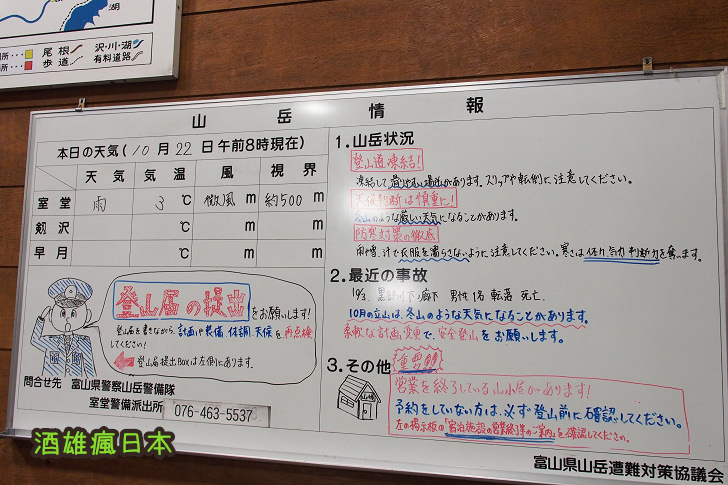 湖
所…
尾根
沢・川・湖
所…
歩道
有料道路
山岳情報
本日の天気(10月22日午前8時現在)
天気 気温 風 視界
室堂 雨 3℃ 微風m 約500m
剱沢 ℃ m m
早月 ℃ m m
登山届の提出をお願いします!
登山届を書きながら、計画や装備、体調、天候を再点検
してください!
登山届提出Boxは左側にあります。
問合せ先 富山県警察山岳警備隊
室堂警備派出所 076-463-5537
1.山岳状況
登山道凍結!
凍結して滑りやすい場所があります。スリップや転倒に注意してください。
天候判断は慎重に!
冬山のような厳しい天気になることがあります。
防寒対策の徹底
雨や雪、汗で衣服を濡らさないように注意してください。寒さは体力気力判断力を奪います。
2.最近の事故
黒部 下ノ廊下 男性1名 転落 死亡.
10月の立山は、冬山のような天気になることがあります。
柔軟な計画変更で、安全登山をお願いします。
3.その他 重要
営業を終了している山小屋があります!
予約をしていない方は、必ず登山前に確認してください。
左の掲示板の「宿泊施設の営業終了等のご案内」を確認してください。
富山県山岳遭難対策協議会
酒雄瘋日本